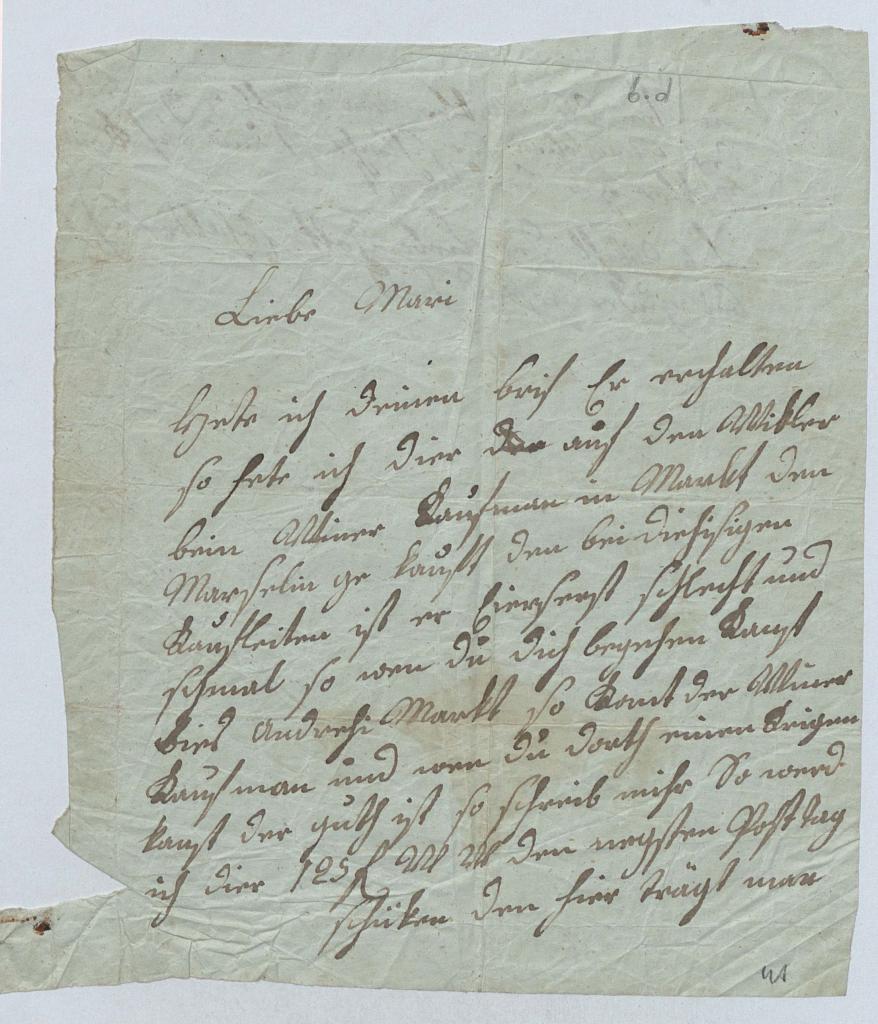 6.d
Liebe Mari
Hete ich deinen brif Er erhalten
so hete ich dier auch den Wikler
beim Winer Kaufman in Markt den
Marselin ge kauft den bei die hisigen
Kaufleiten ist er schlecht und
schmal so wen du dich begehen kanst
bies Andrehi Markt so komt der Winer
Kaufman und wen du dorth einen krigen
kanst der guth ist so schreib mihr So werd
ich dier 125 f W W den negsten Posttag
schüken den hier trägt man